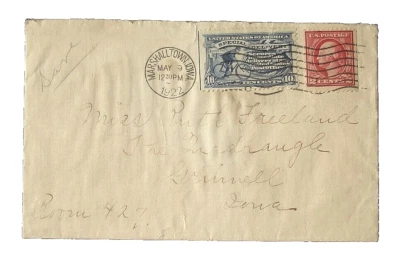 MARSHALLTOWN, IOWA
MAY
12
PM
1922
UNITED STATES OF AMERICA
SPECIAL
10
10
CENTS
U.S. POSTAGE
2 CENTS 2
Miss Ruth Freeland
The Quadrangle
Grinnell
Iowa
Room 427